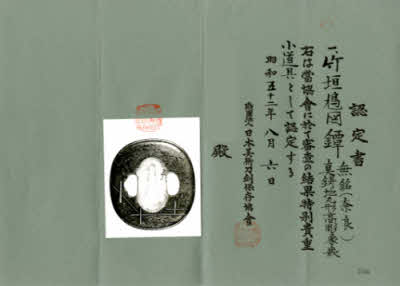 認定書
一、竹垣鶏図鐔 無銘(奈良)
真鍮地 丸形 高彫 象嵌
右は當協會に於て審査の結果特別貴重
小道具として認定する
昭和五十二年 八月 六日
財團法人日本美術刀剣保存協會
殿